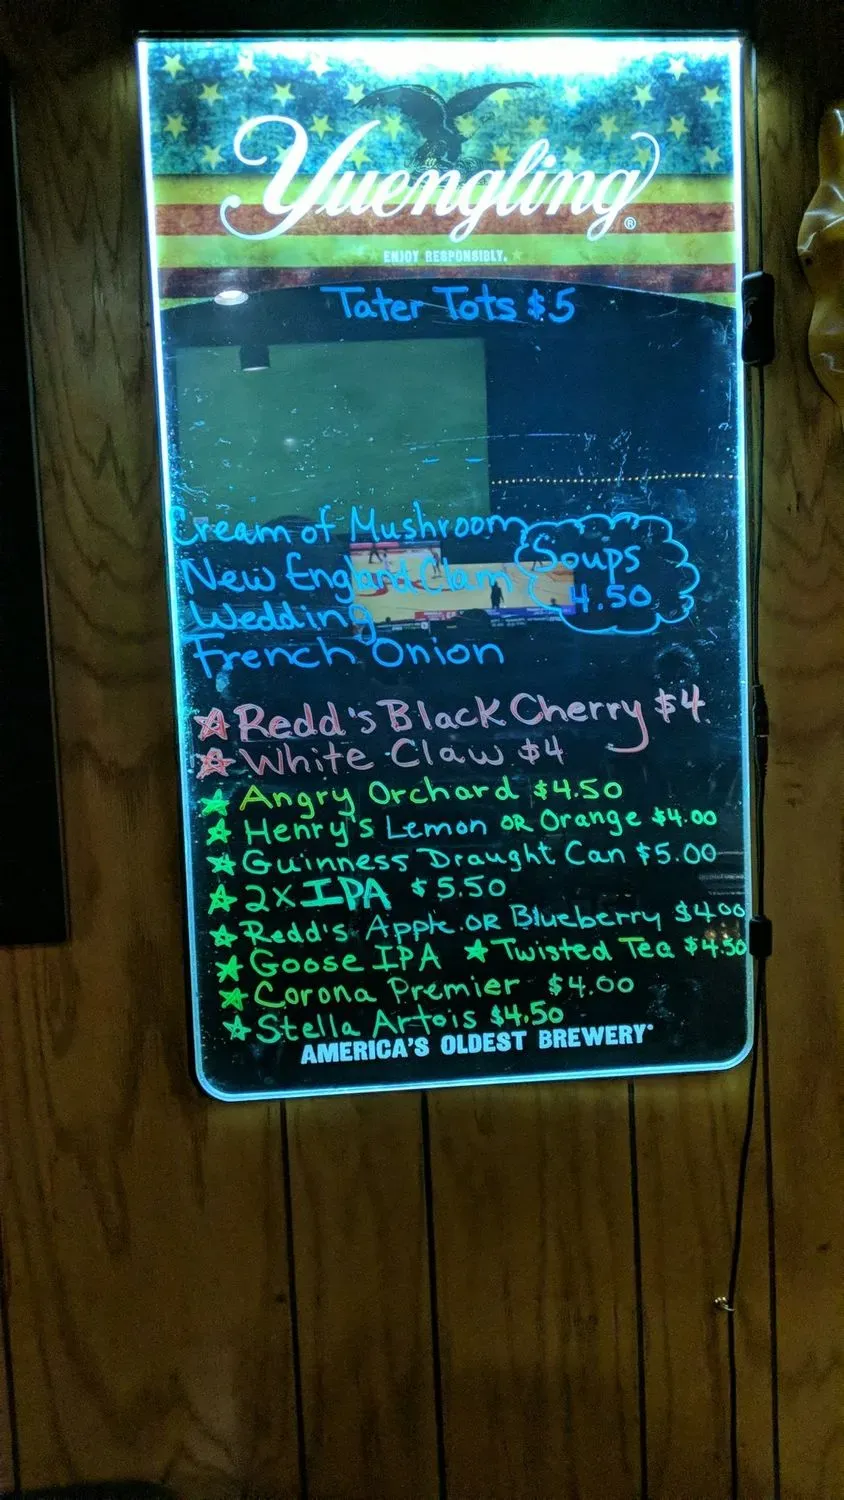 Yuengling®
ENJOY RESPONSIBLY.
Tater Tots $5
Cream of Mushroom
New England Clam
Wedding
French Onion
Soups
4.50
Redd's Black Cherry $4
White Claw $4
Angry Orchard $4.50
Henry's Lemon OR Orange $4.00
Guinness Draught Can $5.00
2X IPA $5.50
Redd's Apple OR Blueberry $4.00
Goose IPA ★ Twisted Tea $4.50
Corona Premier $4.00
Stella Artois $4.50
AMERICA'S OLDEST BREWERY®